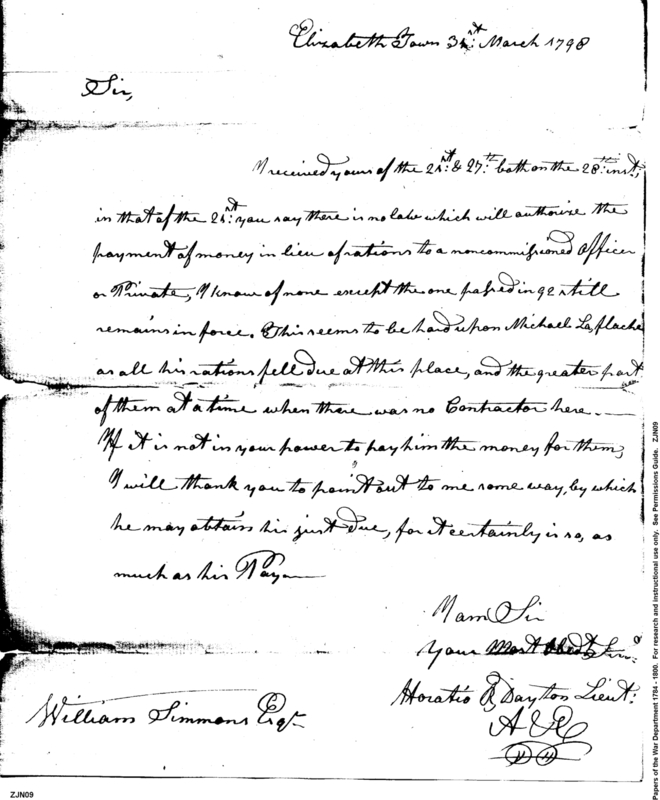 Elizabeth Town 31st March 1798
Sir,
I received yours of the 21st & 27th both on the 28th inst;
in that of the 21st you say there is no law which will authorize the
payment of money in lieu of rations to a noncommissioned Officer
or Private, I know of none except the one passed in 92 still
remains in force. This seems to be hard upon Michael Laflache
as all his rations fell due at this place, and the greater part
of them at a time when there was no Contractor here.
If it is not in your power to pay him the money for them,
I will thank you to point out to me some way, by which
he may obtain his just due, for it certainly is so, as
much as his Pay
I am Sir
Your Most Obedt Servt
Horatio R Dayton Lieut:
William Simmons Esqr
Papers of the War Department 1784 - 1800. For research and instructional use only. See Permissions Guide. ZJN09
ZJN09